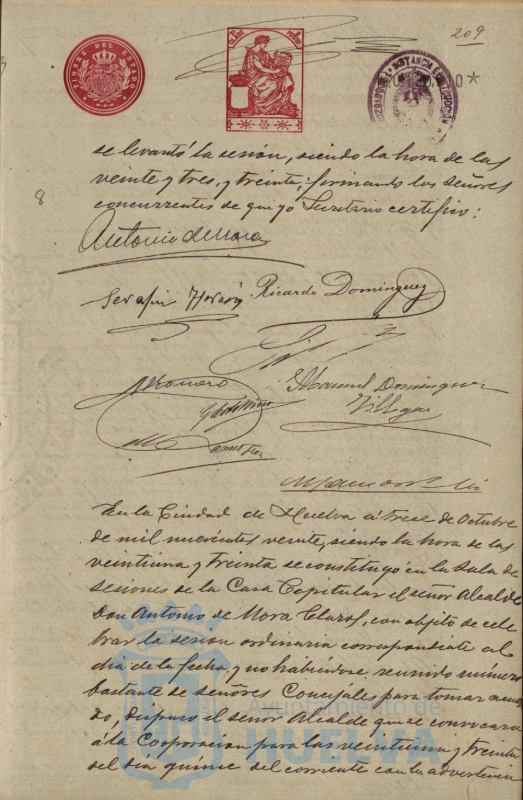 209
TIMBRE DEL ESTADO
JUZGADO DE 1ª INSTANCIA E INSTRUCCION
0*
8
se levantó la sesión, siendo la hora de las
veinte y tres, y treinta; firmando los señores
concurrentes de que yo Secretario certifico:
Antonio de Mora
Serafin Ricardo Dominguez
Manuel Dominguez
Villegas
En la Ciudad de Huelva á trece de Octubre
de mil nuevecientos veinte, siendo la hora de las
veintiuna y treinta se constituyó en la Sala de
sesiones de la Casa Capitular el señor Alcalde
Don Antonio de Mora Claros, con objeto de cele
brar la sesion ordinaria correspondiente al
dia de la fecha, y no habiéndose reunido número
bastante de señores Concejales para tomar acuer
do, dispuso el señor Alcalde que se convocara
á la Corporacion para las veintiuna y treinta
del dia quince del corriente con la advertencia
Ayuntamiento de
HUELVA